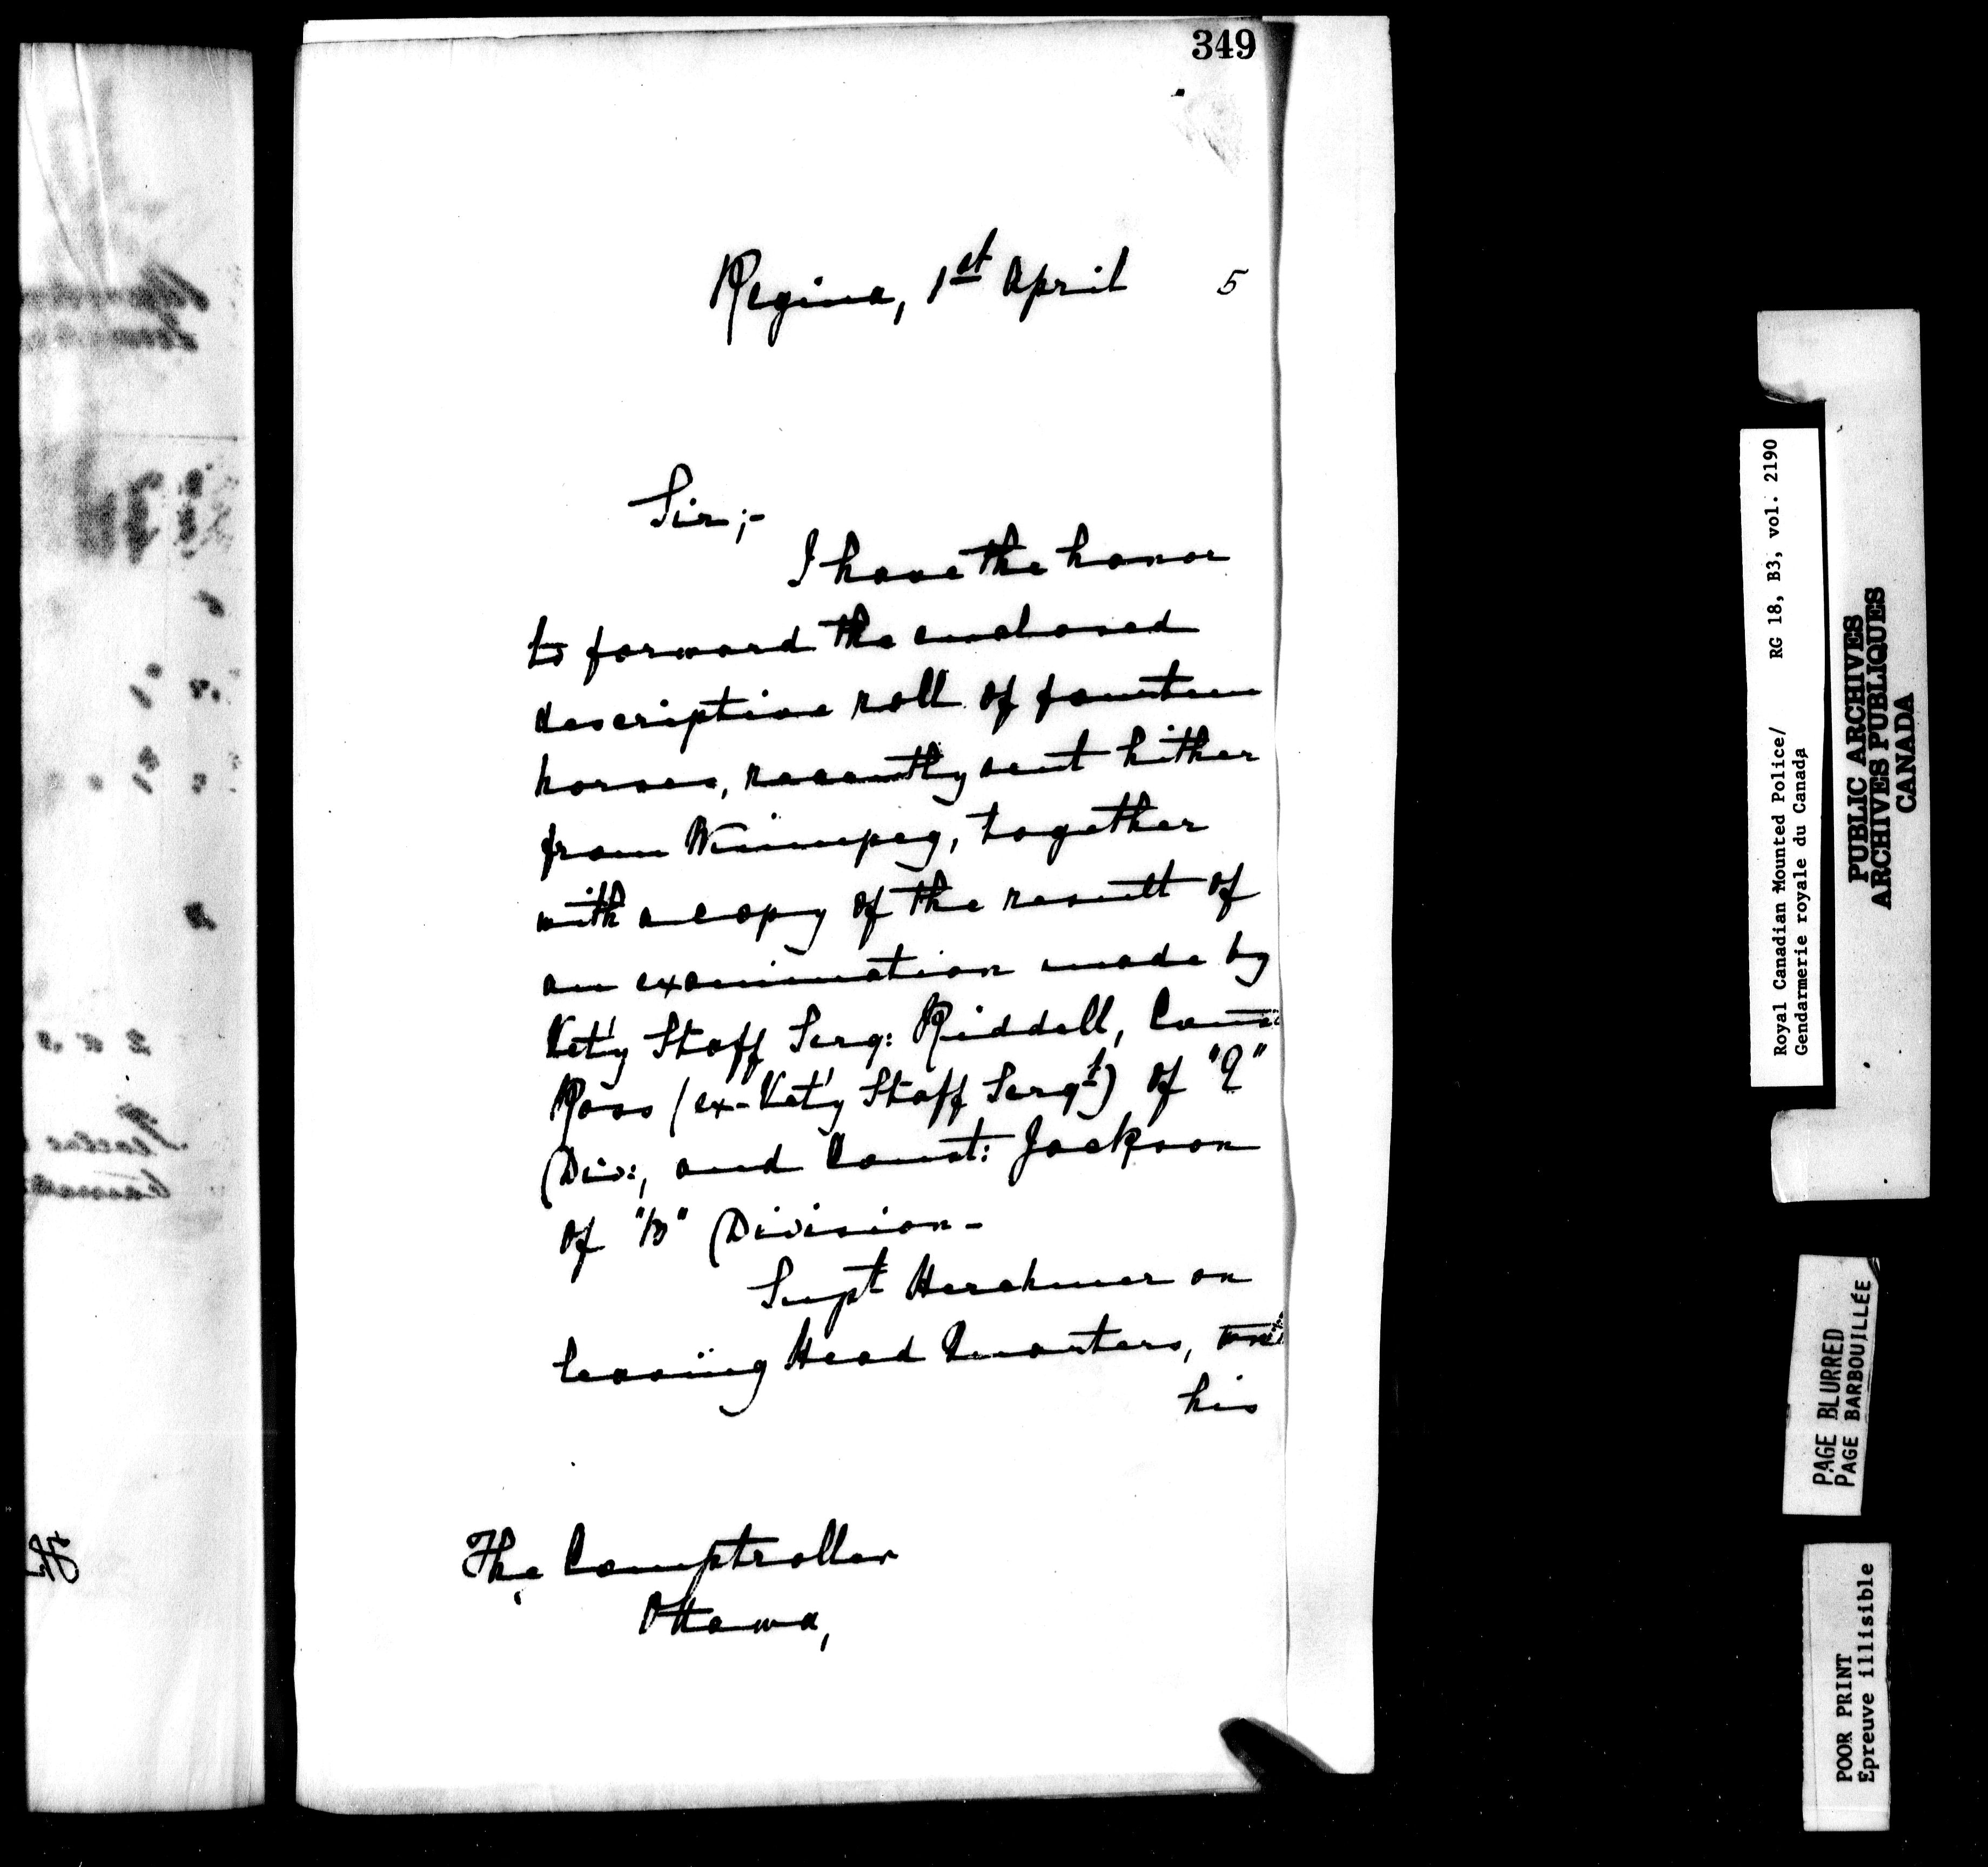 349
Regina, 1st April 5
Sir;-
I have the honor
to forward the enclosed
descriptive roll of fourteen
horses, recently sent hither
from Winnipeg, together
with a copy of the result of
an examination made by
Vet'y Staff Serg: Riddell, Const:
Ross (ex-Vet'y Staff Sergt) of
Div:, and Const: Jackson
of "B" Division -
Supt Herchmer on
leaving Head Quarters,
his
The Comptroller
Ottawa,
Royal Canadian Mounted Police/ RG 18, B3, vol. 2190
Gendarmerie royale du Canada
PUBLIC ARCHIVES
ARCHIVES PUBLIQUES
CANADA
PAGE BLURRED
PAGE BARBOUILLÉE
POOR PRINT
Epreuve illisible